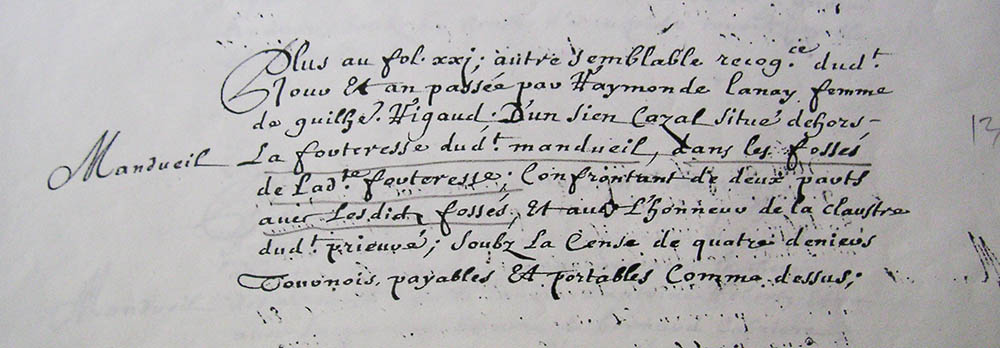 Plus au fol. xxj; autre semblable recog.ce dud.t
Jour Et an passée par Raymonde Lanay femme
de guilhe. Rigaud. D'un sien Cazal situé dehors-
Mandueil
La forteresse dud.t mandueil, dans les fossés
de Lad.te forteresse; Confrontant de deux parts
avec Lesdicts fossés, Et avec L'honneur de la claustre
dud.t prieuré; soubz La Cense de quatre deniers
Tournois, payables Et portables Comme dessus;